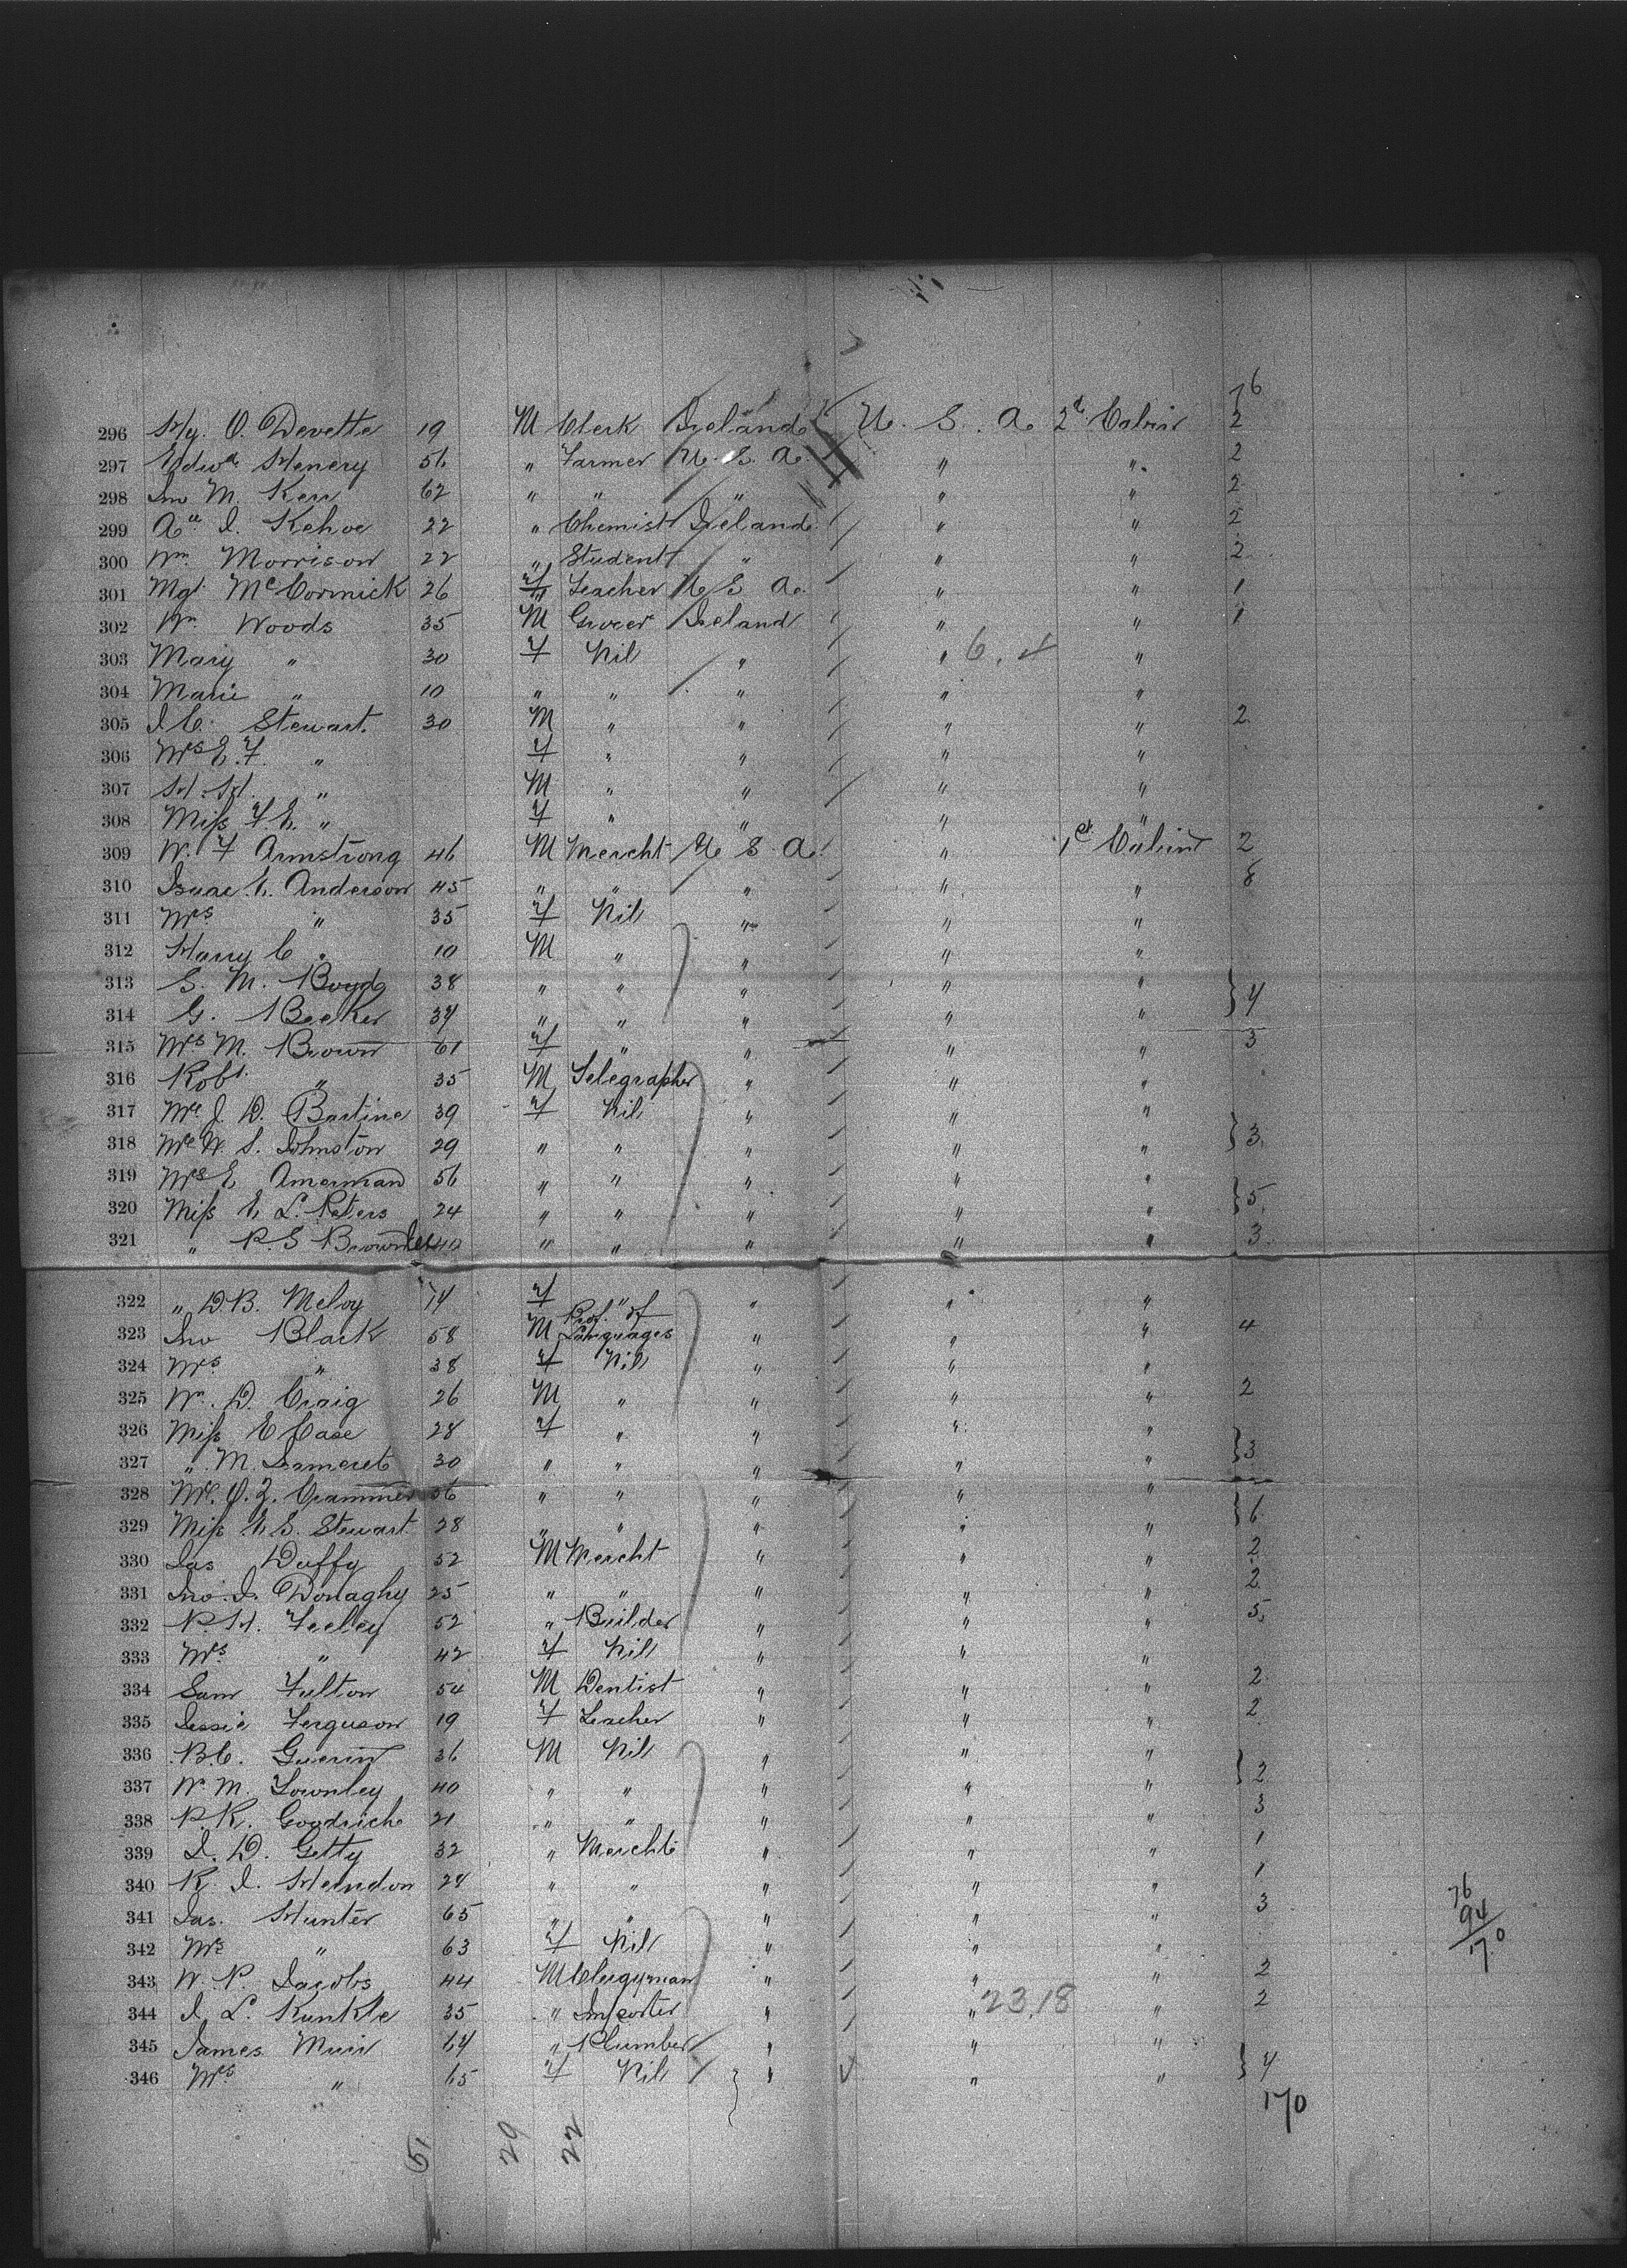 76
296 Hy. O. Devette 19 M Clerk Ireland U. S. A. 2d Cabin 2
297 Edwd Henery 56 " Farmer U. S. A. " " 2
298 Jno M. Kerr 62 " " " " " 2
299 J. Kehoe 22 " Chemist Ireland " " 2
300 Wm Morrison 22 " Student " " " 2
301 Mgt McCormick 26 F Teacher U S A. " " 1
302 Wm Woods 35 M Grocer Ireland " " 1
303 Mary " 30 F Nil " " 6.4 "
304 Marie " 10 " " " " "
305 J. C. Stewart. 30 M " " " " 2
306 Mrs E. F. " F " " " "
307 H. H. " M " " " "
308 Miss F. E. " F " " " "
309 W. F Armstrong 46 M Mercht U S A. " 1st Cabin 2
310 Isaac E. Anderson 45 " " " " " 8
311 Mrs " 35 F Nil " " "
312 Harry C " 10 M " " " "
313 S. M. Boyd 38 " " " " "
314 G. Becker 34 " " " " " } 4
315 Mrs M. Brown 61 F " " " " 3
316 Robt " 35 M Telegrapher " " "
317 Mrs J. D. Bartine 39 F Nil " " "
318 Mrs W. S. Johnston 29 " " " " " } 3
319 Mrs E Amerman 56 " " " " "
320 Miss E L. Peters 24 " " " " " } 5
321 " P. S 40 " " " " " 3
322 " D. B. Meloy 14 F " " " "
323 Jno Black 58 M Prof. of Languages " " " 4
324 Mrs " 38 F Nil " " "
325 Wm. D. Craig 26 M " " " " 2
326 Miss E Case 28 F " " " "
327 " M. 30 " " " " " } 3
328 Mrs. O. Z. Crammer 56 " " " " "
329 Miss E. S. Stewart 28 " " " " " } 6
330 Jas Duffy 52 M Mercht " " " 2
331 Jno. J. Donaghy 25 " " " " " 2
332 P. H. Feeley 52 " Builder " " " 5
333 Mrs " 42 F Nil " " "
334 Sam Fulton 54 M Dentist " " " 2
335 Jessie Ferguson 19 F Teacher " " " 2
336 B. C. Guerin 36 M Nil " " "
337 W. M. Townley 40 " " " " " } 2
338 P. R. Goodrich 21 " " " " " 3
339 J. D. Getty 32 " Mercht " " " 1
340 R. J. Herndon 24 " " " " " 1
341 Jas. Hunter 65 " " " " " 3
342 Mrs " 63 F Nil " " "
343 W. P. Jacobs 44 M Clergyman " " " 2
344 J. L. Kunkle 35 " Importer " " 23.18 " 2
345 James Muir 64 " Plumber " " "
346 Mrs " 65 F Nil " " " } 4
76
94
170
170
51 29 22